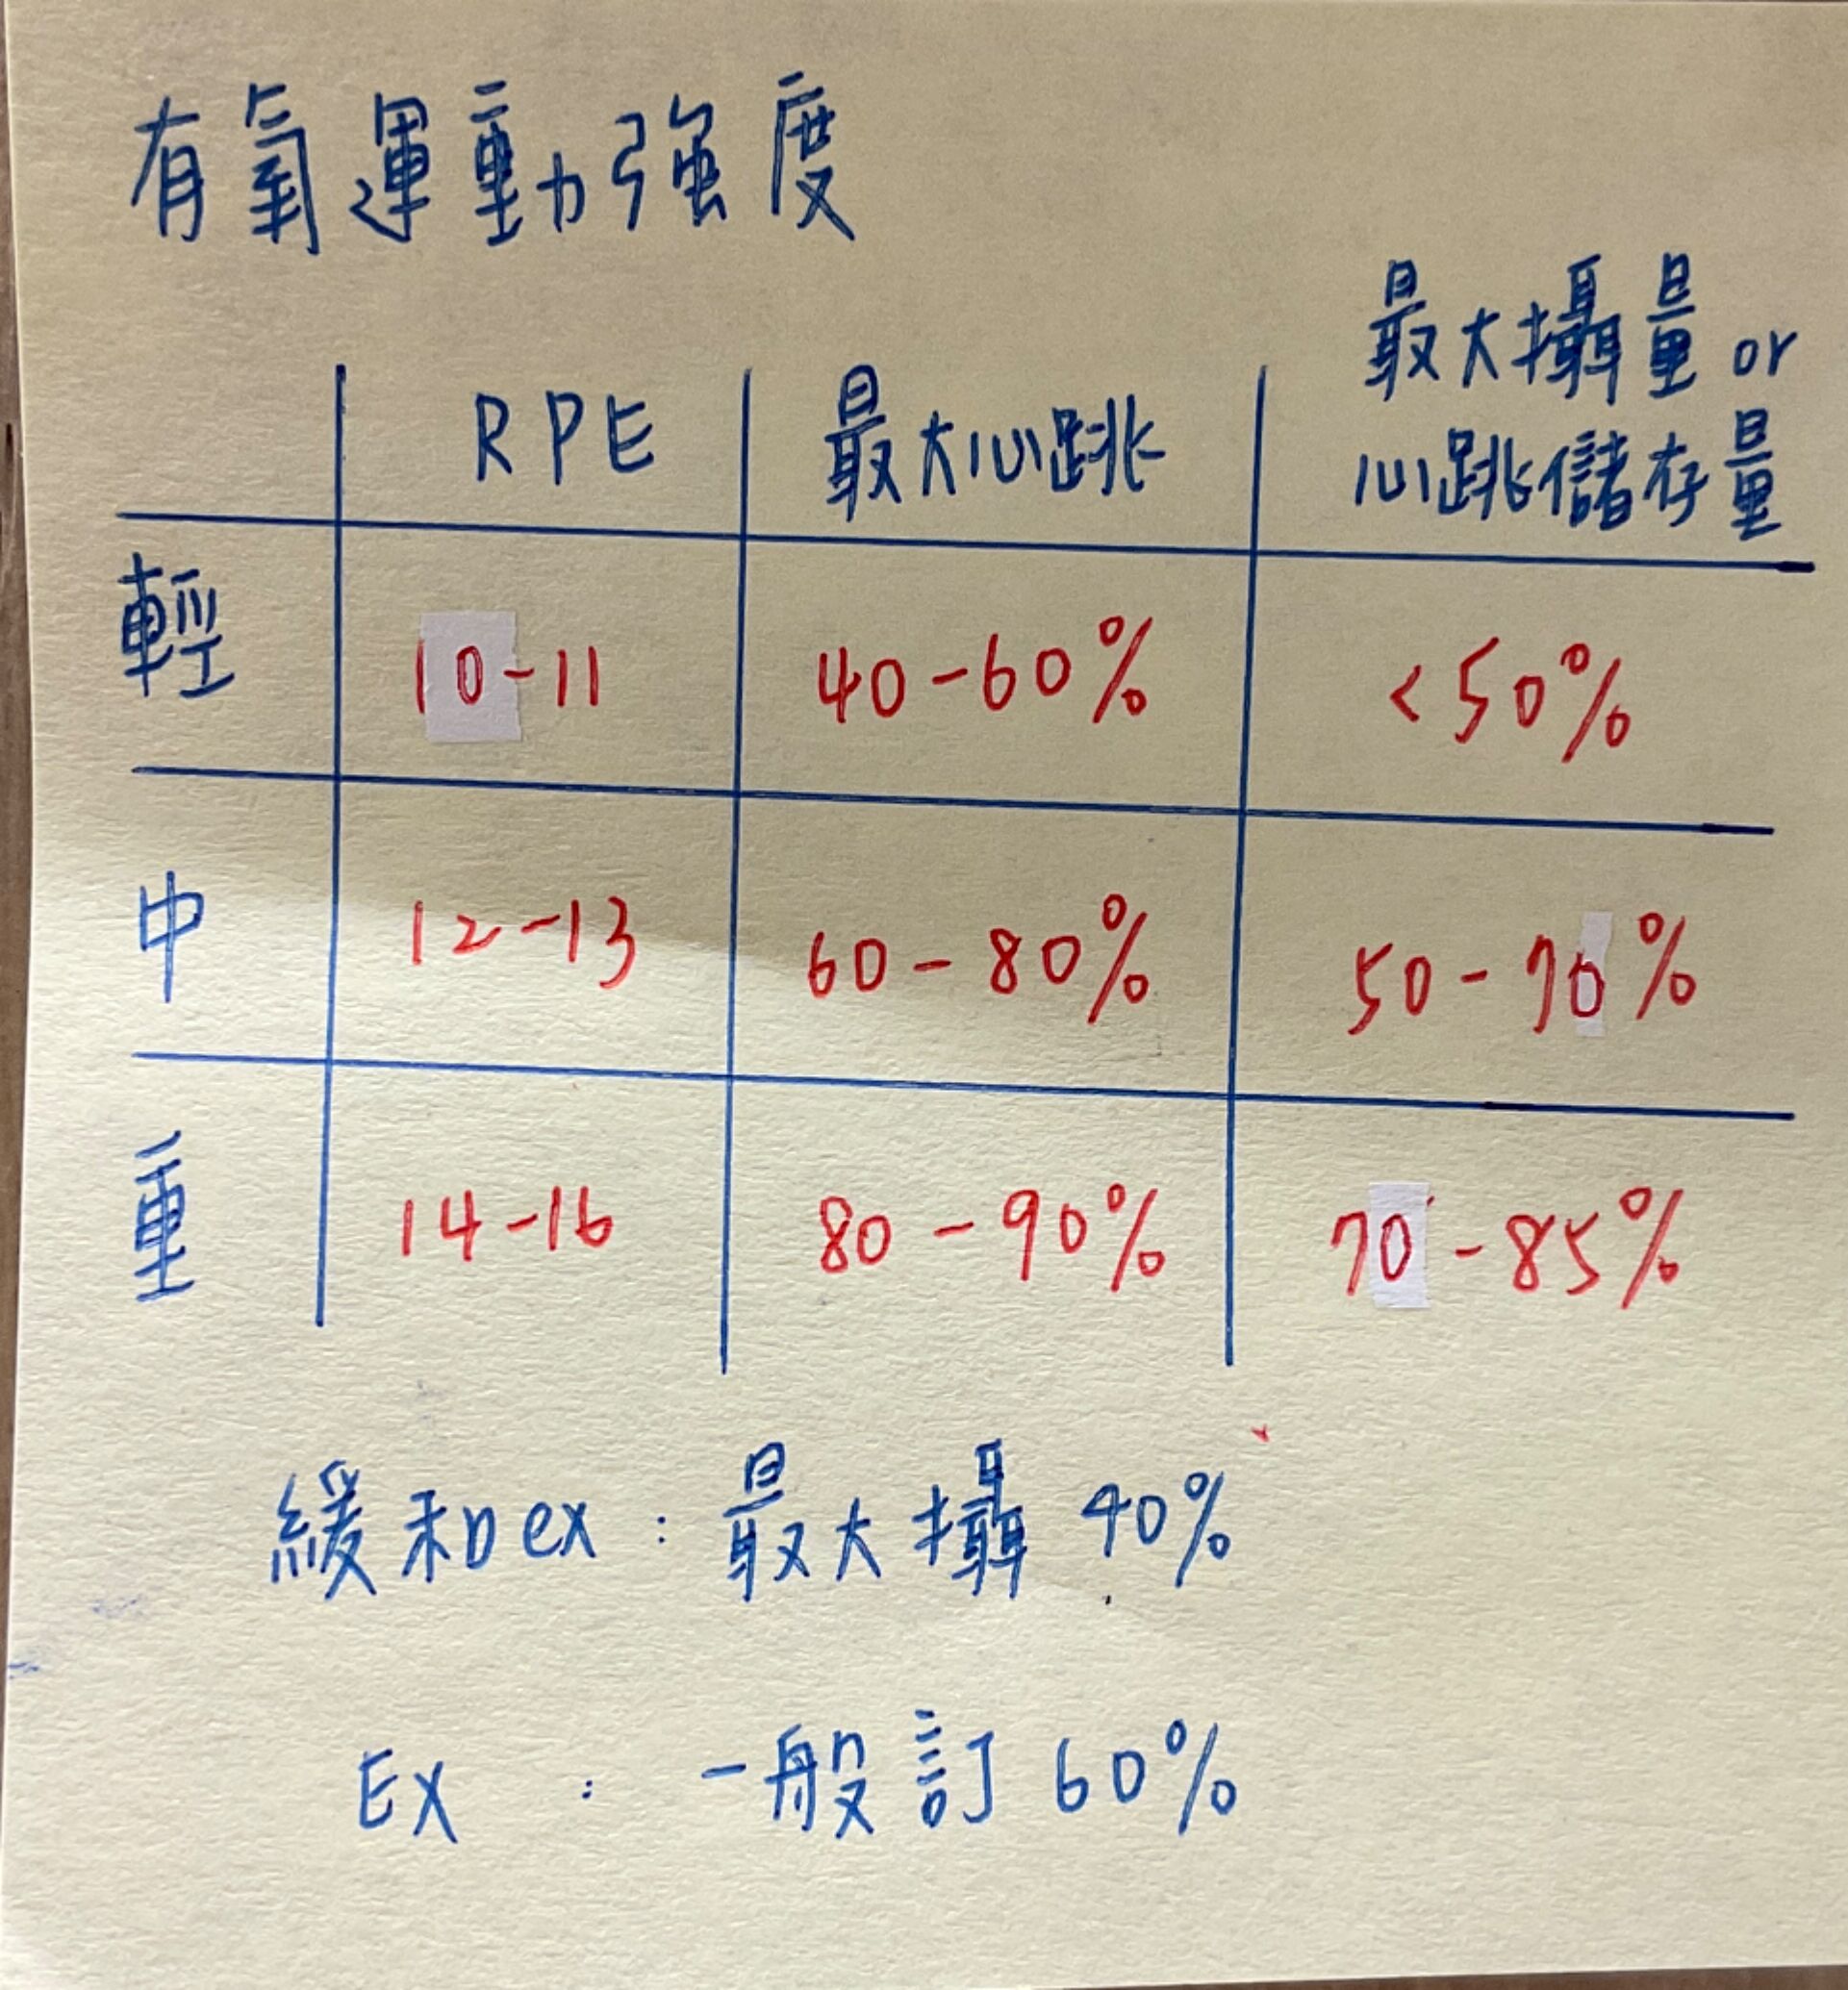 有氧運動強度
最大攝量 or
RPE 最大心跳 心跳儲存量
輕 10-11 40-60% <50%
中 12-13 60-80% 50-70%
重 14-16 80-90% 70-85%
緩和ex : 最大攝 40%
EX : 一般訂 60%